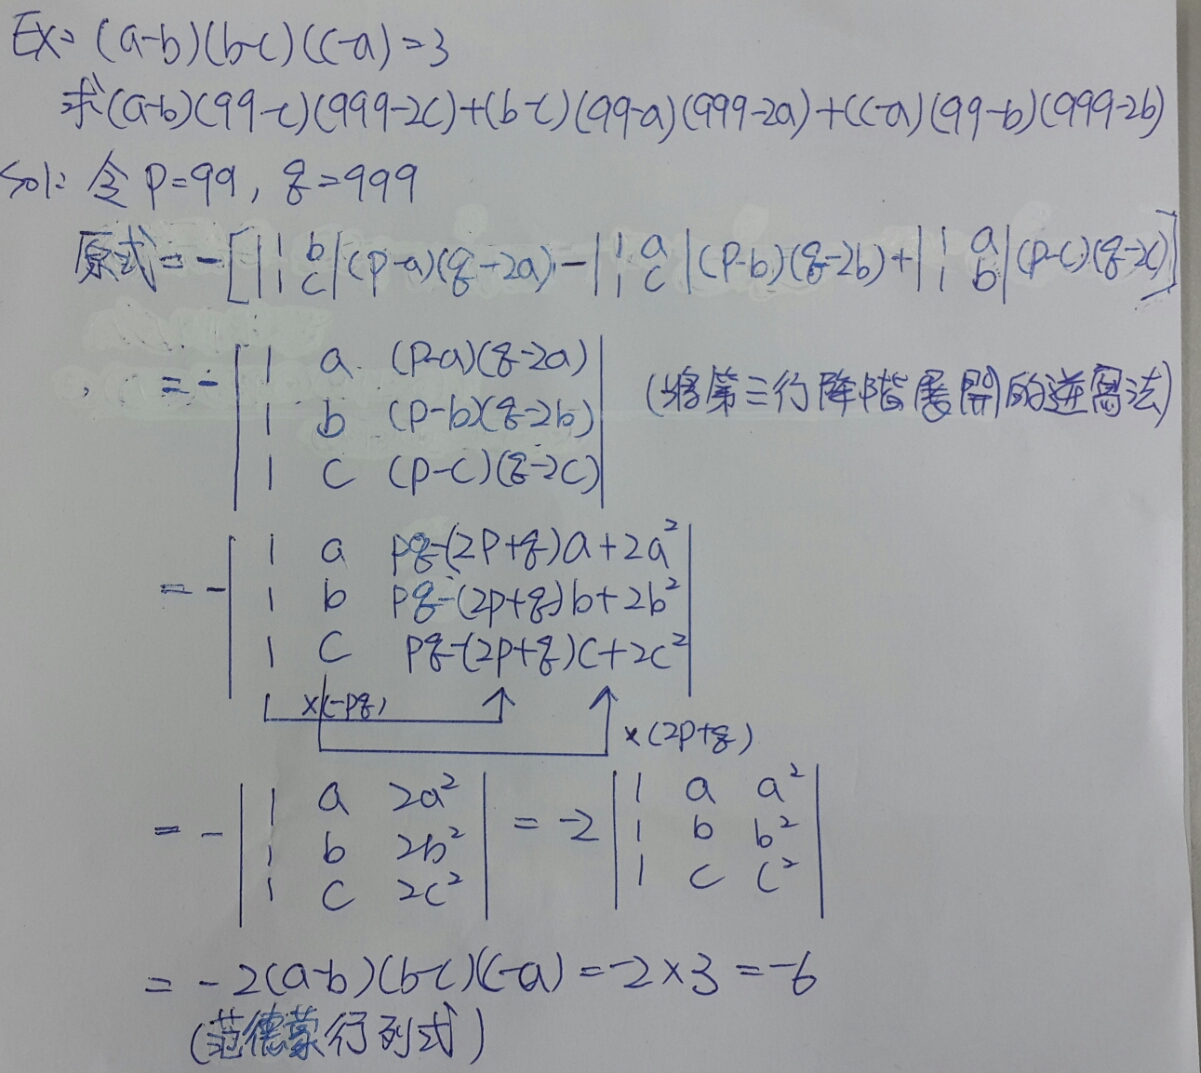 Ex: (a-b)(b-c)(c-a)=3
求(a-b)(99-c)(999-2c)+(b-c)(99-a)(999-2a)+(c-a)(99-b)(999-2b)
Sol: 令 p=99, q=999
原式=-[|1 b; 1 c|(p-a)(q-2a)-|1 a; 1 c|(p-b)(q-2b)+|1 a; 1 b|(p-c)(q-2c)]
=-|1 a (p-a)(q-2a)| (將第三行降階展開的逆寫法)
|1 b (p-b)(q-2b)|
|1 c (p-c)(q-2c)|
=-|1 a pq-(2p+q)a+2a²|
|1 b pq-(2p+q)b+2b²|
|1 c pq-(2p+q)c+2c²|
×(-pq)
×(2p+q)
=-|1 a 2a²| =-2|1 a a²|
|1 b 2b²| |1 b b²|
|1 c 2c²| |1 c c²|
=-2(a-b)(b-c)(c-a)=-2×3=-6
(范德蒙行列式)